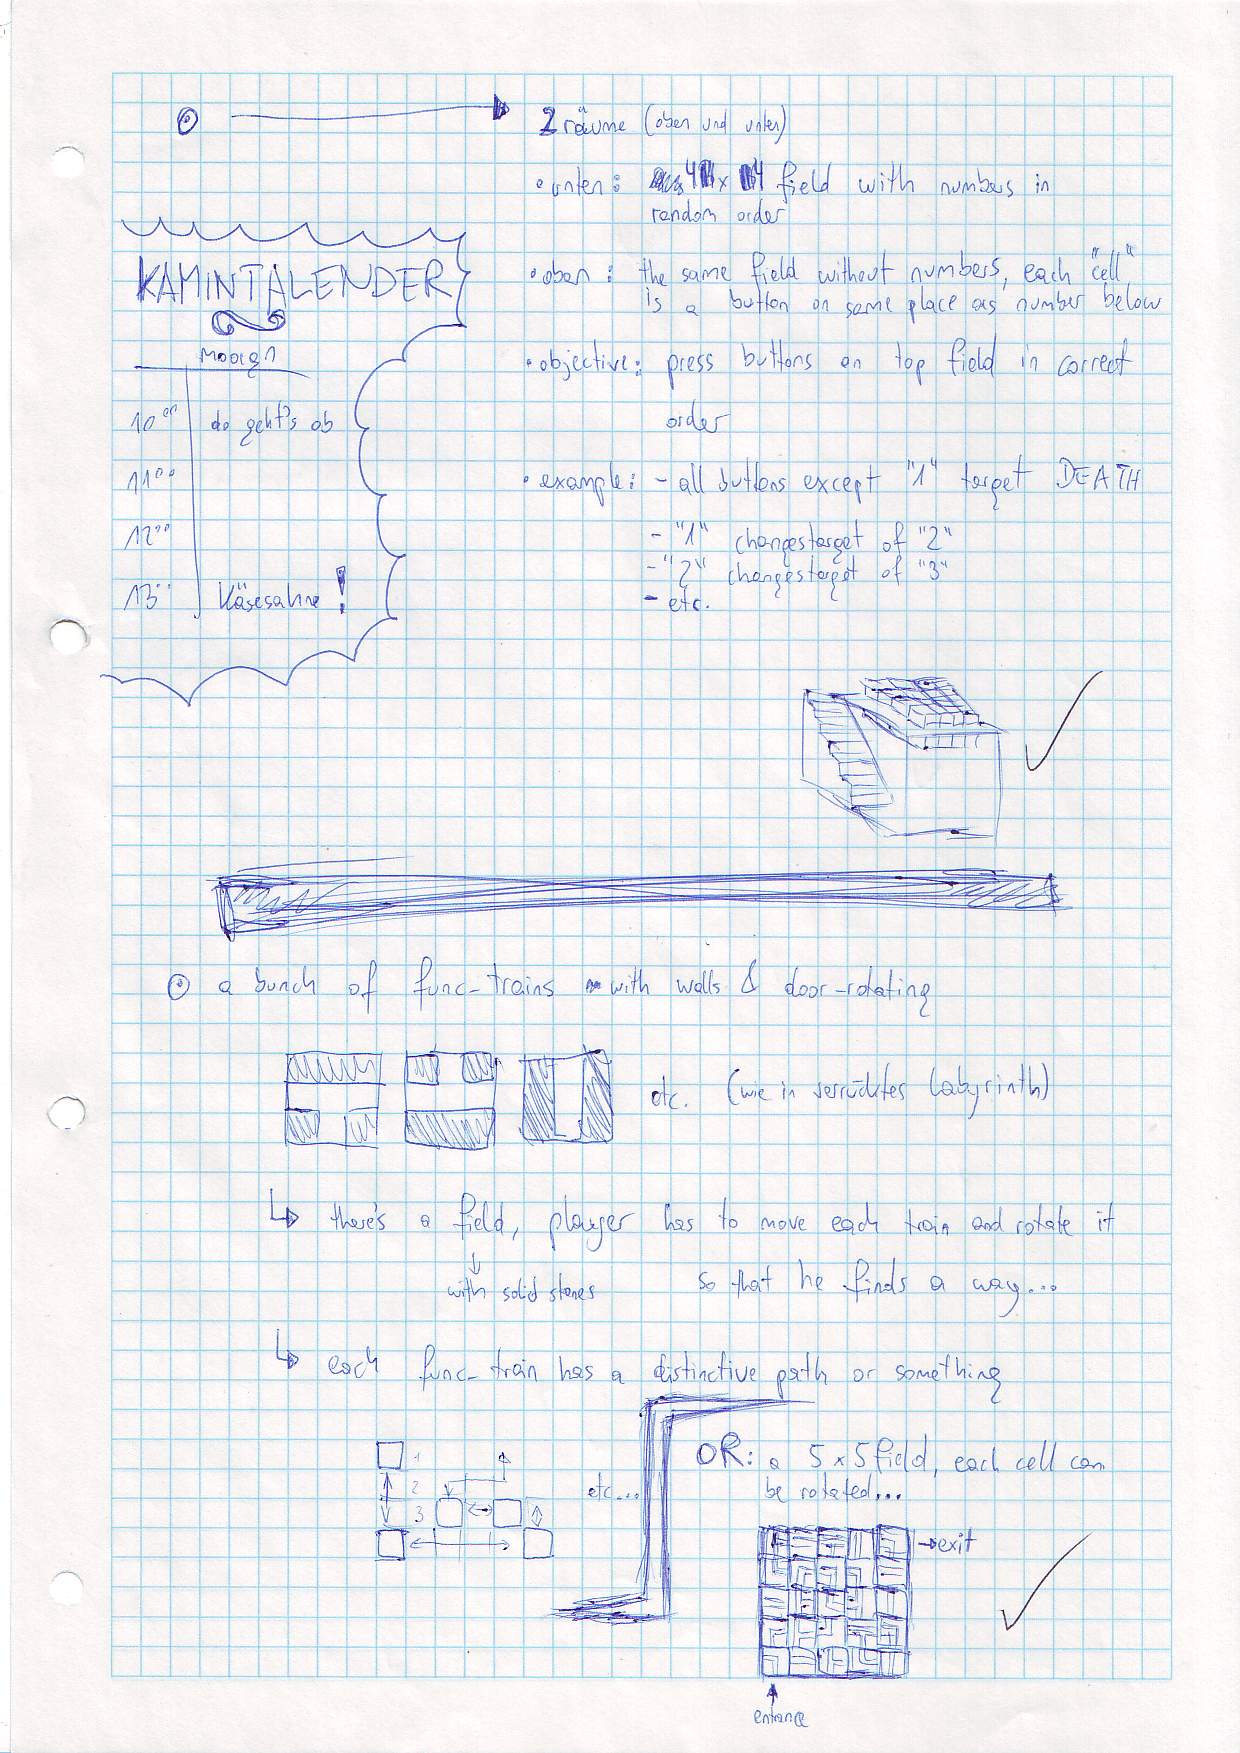 2 räume (oben und unten)
• unten: 4 x 4 field with numbers in
random order
• oben: the same field without numbers, each "cell"
is a button on same place as number below
• objective: press buttons on top field in correct
order
• example: - all buttons except "1" target DEATH
- "1" changes target of "2"
- "2" changes target of "3"
- etc.
KAMINTALENDER
Moorgn
10°° do geht's ob
11°°
12°°
13°° Käsesahne!
a bunch of func-trains with walls & door-rotating
etc. (wie in verrücktes Labyrinth)
↳ there's a field, player has to move each train and rotate it
↓ with solid stones
so that he finds a way...
↳ each func-train has a distinctive path or something
1
2
3
etc...
OR: a 5 x 5 field, each cell can
be rotated...
→ exit
↑
entrance